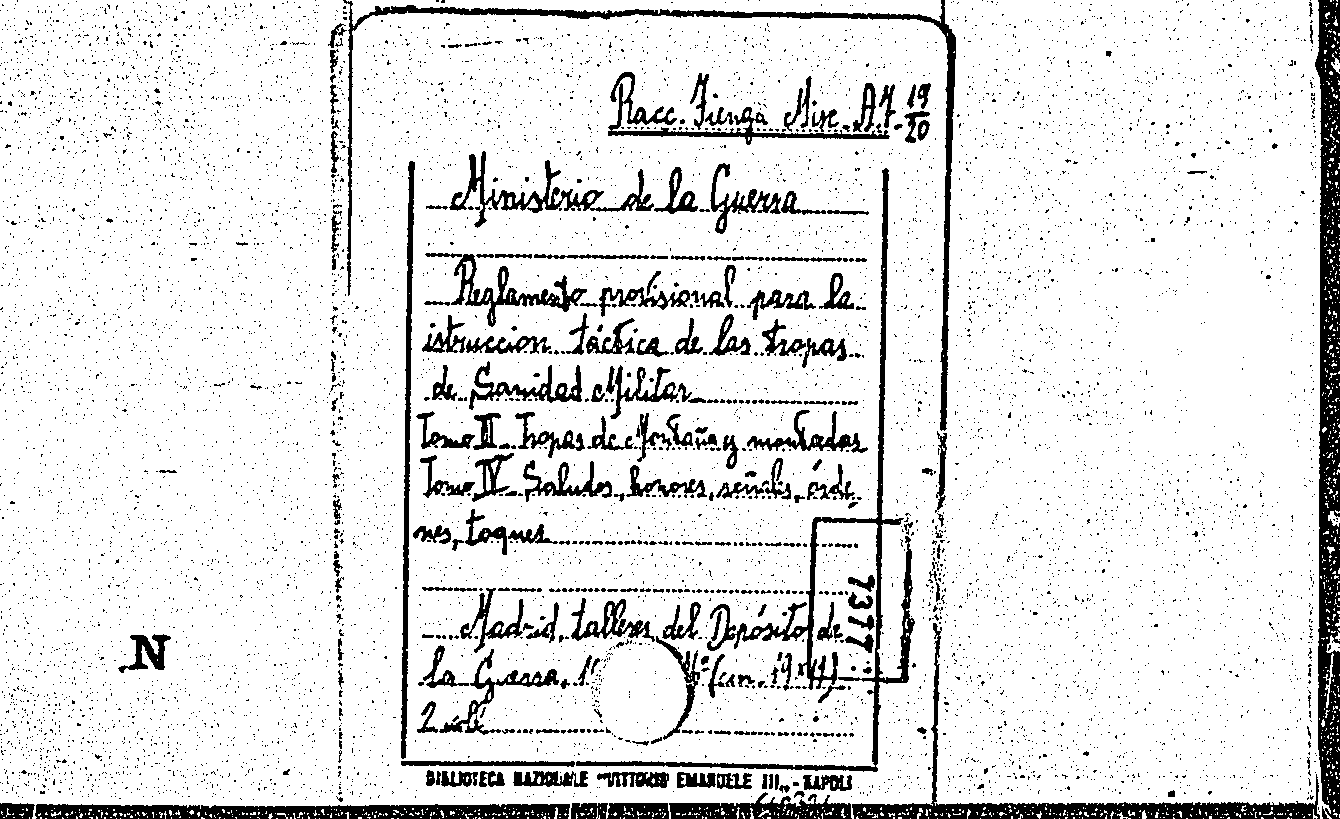 Racc. Fienga Misc. A7. 19/20
Ministerio de la Guerra
Reglamento provisional para la
istruccion táctica de las tropas
de Sanidad Militar
Tomo II. Tropas de Montaña y montadas
Tomo IV. Saludos, honores, señales, órde
nes, toques
7377
Madrid, talleres del Depósito de
la Guerra,
2 vol.
N
BIBLIOTECA NAZIONALE "VITTORIO EMANUELE III" - NAPOLI